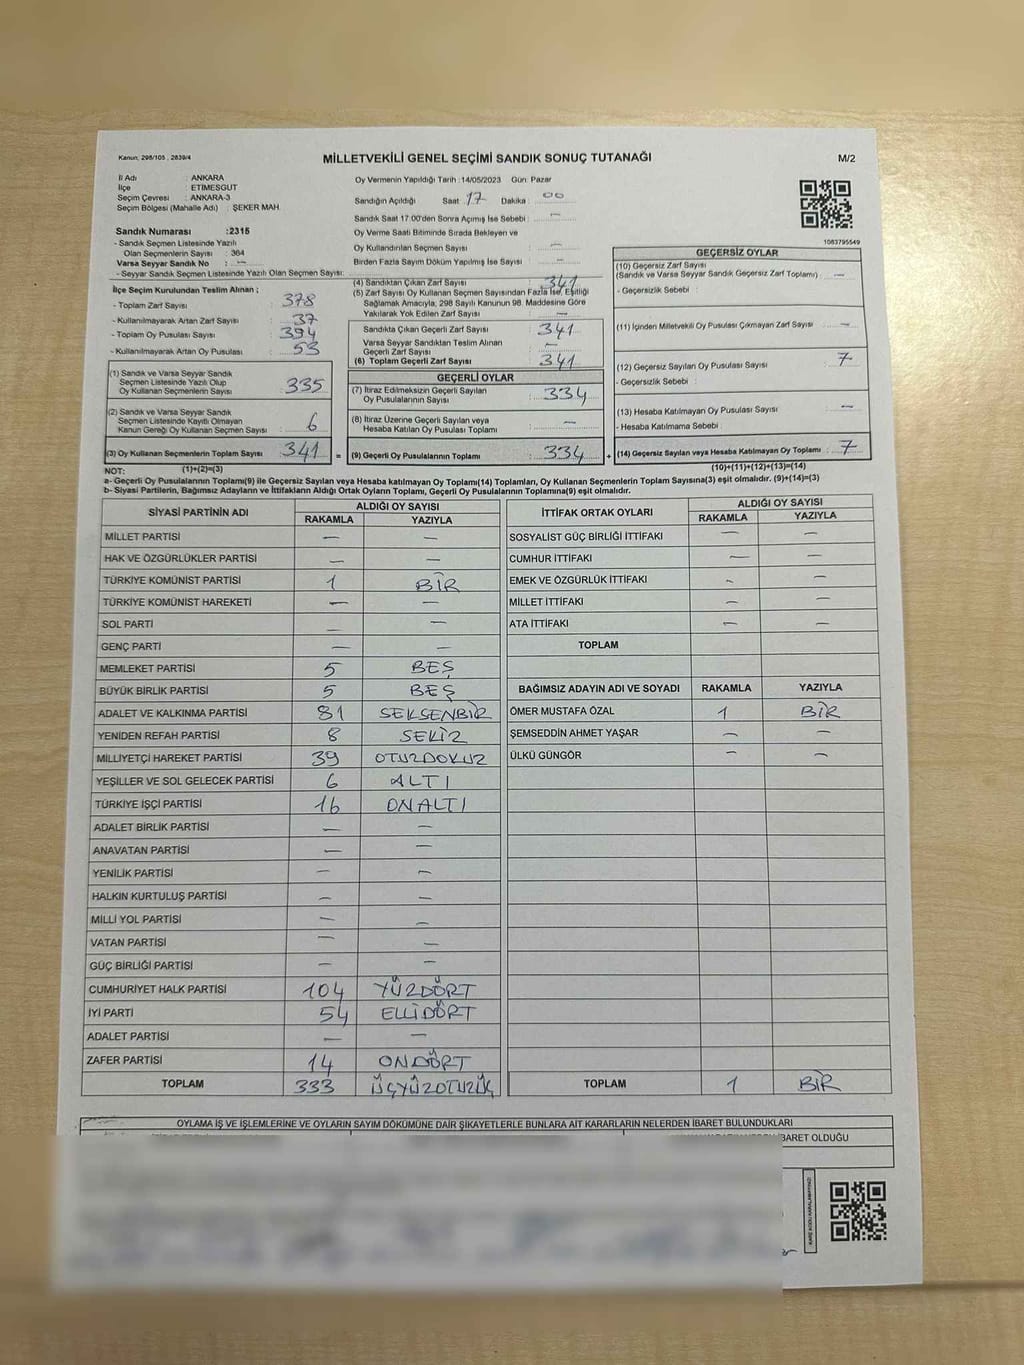 Kanun, 298/105 , 2839/4
MİLLETVEKİLİ GENEL SEÇİMİ SANDIK SONUÇ TUTANAĞI
M/2
İl Adı : ANKARA
İlçe : ETİMESGUT
Seçim Çevresi : ANKARA-3
Seçim Bölgesi (Mahalle Adı) : ŞEKER MAH.
Oy Vermenin Yapıldığı Tarih :14/05/2023 Gün: Pazar
Sandığın Açıldığı Saat : 17 Dakika : 00
Sandık Saat 17:00'den Sonra Açımış İse Sebebi : —
Oy Verme Saati Bitiminde Sırada Bekleyen ve
Oy Kullandırılan Seçmen Sayısı : —
Birden Fazla Sayım Döküm Yapılmış İse Sayısı : —
1083795549
Sandık Numarası :2315
- Sandık Seçmen Listesinde Yazılı
Olan Seçmenlerin Sayısı : 364
Varsa Seyyar Sandık No : —
- Seyyar Sandık Seçmen Listesinde Yazılı Olan Seçmen Sayısı:
İlçe Seçim Kurulundan Teslim Alınan ;
- Toplam Zarf Sayısı : 378
- Kullanılmayarak Artan Zarf Sayısı : 37
- Toplam Oy Pusulası Sayısı : 394
- Kullanılmayarak Artan Oy Pusulası : 53
(1) Sandık ve Varsa Seyyar Sandık
Seçmen Listesinde Yazılı Olup
Oy Kullanan Seçmenlerin Sayısı : 335
(2) Sandık ve Varsa Seyyar Sandık
Seçmen Listesinde Kayıtlı Olmayan
Kanun Gereği Oy Kullanan Seçmen Sayısı : 6
(3) Oy Kullanan Seçmenlerin Toplam Sayısı : 341
(4) Sandıktan Çıkan Zarf Sayısı : 341
(5) Zarf Sayısı Oy Kullanan Seçmen Sayısından Fazla İse, Eşitliği
Sağlamak Amacıyla, 298 Sayılı Kanunun 98. Maddesine Göre
Yakılarak Yok Edilen Zarf Sayısı : —
Sandıkta Çıkan Geçerli Zarf Sayısı : 341
Varsa Seyyar Sandıktan Teslim Alınan
Geçerli Zarf Sayısı : —
(6) Toplam Geçerli Zarf Sayısı : 341
GEÇERLİ OYLAR
(7) İtiraz Edilmeksizin Geçerli Sayılan
Oy Pusulalarının Sayısı : 334
(8) İtiraz Üzerine Geçerli Sayılan veya
Hesaba Katılan Oy Pusulası Toplamı : —
= (9) Geçerli Oy Pusulalarının Toplamı : 334
GEÇERSİZ OYLAR
(10) Geçersiz Zarf Sayısı
(Sandık ve Varsa Seyyar Sandık Geçersiz Zarf Toplamı) : —
- Geçersizlik Sebebi :
(11) İçinden Milletvekili Oy Pusulası Çıkmayan Zarf Sayısı : —
(12) Geçersiz Sayılan Oy Pusulası Sayısı : 7
- Geçersizlik Sebebi :
(13) Hesaba Katılmayan Oy Pusulası Sayısı : —
- Hesaba Katılmama Sebebi :
+ (14) Geçersiz Sayılan veya Hesaba Katılmayan Oy Toplamı : 7
NOT: (1)+(2)=(3) (10)+(11)+(12)+(13)=(14)
a- Geçerli Oy Pusulalarının Toplamı(9) ile Geçersiz Sayılan veya Hesaba katılmayan Oy Toplamı(14) Toplamları, Oy Kullanan Seçmenlerin Toplam Sayısına(3) eşit olmalıdır. (9)+(14)=(3)
b- Siyasi Partilerin, Bağımsız Adayların ve İttifakların Aldığı Ortak Oyların Toplamı, Geçerli Oy Pusulalarının Toplamına(9) eşit olmalıdır.
SİYASİ PARTİNİN ADI ALDIĞI OY SAYISI
RAKAMLA YAZIYLA
MİLLET PARTİSİ — —
HAK VE ÖZGÜRLÜKLER PARTİSİ — —
TÜRKİYE KOMÜNİST PARTİSİ 1 BİR
TÜRKİYE KOMÜNİST HAREKETİ — —
SOL PARTİ — —
GENÇ PARTİ — —
MEMLEKET PARTİSİ 5 BEŞ
BÜYÜK BİRLİK PARTİSİ 5 BEŞ
ADALET VE KALKINMA PARTİSİ 81 SEKSENBİR
YENİDEN REFAH PARTİSİ 8 SEKİZ
MİLLİYETÇİ HAREKET PARTİSİ 39 OTUZDOKUZ
YEŞİLLER VE SOL GELECEK PARTİSİ 6 ALTI
TÜRKİYE İŞÇİ PARTİSİ 16 ONALTI
ADALET BİRLİK PARTİSİ — —
ANAVATAN PARTİSİ — —
YENİLİK PARTİSİ — —
HALKIN KURTULUŞ PARTİSİ — —
MİLLİ YOL PARTİSİ — —
VATAN PARTİSİ — —
GÜÇ BİRLİĞİ PARTİSİ — —
CUMHURİYET HALK PARTİSİ 104 YÜZDÖRT
İYİ PARTİ 54 ELLİDÖRT
ADALET PARTİSİ — —
ZAFER PARTİSİ 14 ONDÖRT
TOPLAM 333 ÜÇYÜZOTUZÜÇ
İTTİFAK ORTAK OYLARI ALDIĞI OY SAYISI
RAKAMLA YAZIYLA
SOSYALİST GÜÇ BİRLİĞİ İTTİFAKI — —
CUMHUR İTTİFAKI — —
EMEK VE ÖZGÜRLÜK İTTİFAKI — —
MİLLET İTTİFAKI — —
ATA İTTİFAKI — —
TOPLAM
BAĞIMSIZ ADAYIN ADI VE SOYADI RAKAMLA YAZIYLA
ÖMER MUSTAFA ÖZAL 1 BİR
ŞEMSEDDİN AHMET YAŞAR — —
ÜLKÜ GÜNGÖR — —
TOPLAM 1 BİR
OYLAMA İŞ VE İŞLEMLERİNE VE OYLARIN SAYIM DÖKÜMÜNE DAİR ŞİKAYETLERLE BUNLARA AİT KARARLARIN NELERDEN İBARET BULUNDUKLARI
İBARET OLDUĞU
KARE KODU KARALAMAYINIZ!